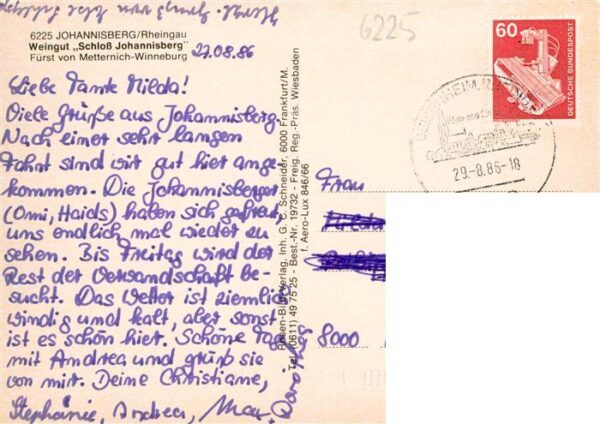 6225 JOHANNISBERG/Rheingau
Weingut „Schloß Johannisberg"
Fürst von Metternich-Winneburg
27.08.86
6225
Liebe Tante Hilda!
Viele Grüße aus Johannisberg.
Nach einer sehr langen
Fahrt sind wir gut hier ange-
kommen. Die Johannisberger
(Omi, Haids) haben sich gefreut,
uns endlich mal wieder zu
sehen. Bis Freitag wird der
Rest der Verwandschaft be-
sucht. Das Wetter ist ziemlich
windig und kalt, aber sonst
ist es schön hier. Schöne Tage
mit Andrea und grüß sie
von mir. Deine Christiane,
Stephanie, Andrea, Max
Dorothee
Rosen-Bild-Verlag, Inh. G. u. C. Schneider, 6000 Frankfurt/M.
Tel. (0611) 49 75 25 - Best.-Nr. 19732 - Freig. Reg.-Präs. Wiesbaden
f. Aero-Lux 846/66
60
DEUTSCHE BUNDESPOST
29-8.86-18
Frau
8000